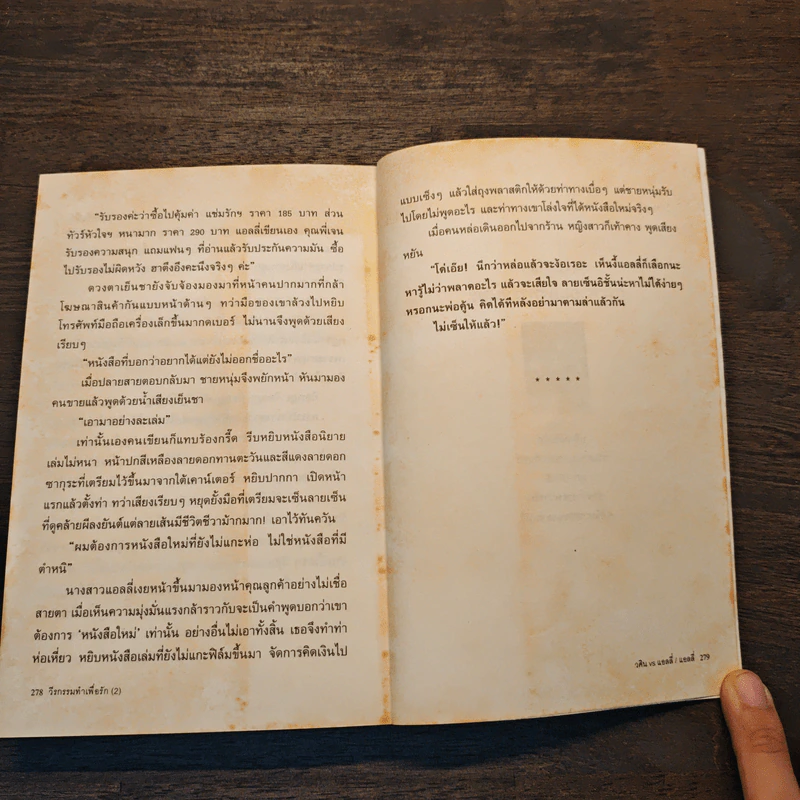 "รับรองค่ะว่าซื้อไปคุ้มค่า แช่มรักฯ ราคา 185 บาท ส่วน
ทัวร์หัวใจฯ หนามาก ราคา 290 บาท แอลลี่เขียนเอง คุณพี่เจน
รับรองความสนุก แถมแฟนๆ ที่อ่านแล้วรับประกันความมัน ซื้อ
ไปรับรองไม่ผิดหวัง ฮาตึงอึงคะนึงจริงๆ ค่ะ"
ดวงตาเย็นชายังจับจ้องมองมาที่หน้าคนปากมากที่กล้า
โฆษณาสินค้ากันแบบหน้าด้านๆ ทว่ามือของเขาล้วงไปหยิบ
โทรศัพท์มือถือเครื่องเล็กขึ้นมากดเบอร์ ไม่นานจึงพูดด้วยเสียง
เรียบๆ
"หนังสือที่บอกว่าอยากได้แต่ยังไม่ออกชื่ออะไร"
เมื่อปลายสายตอบกลับมา ชายหนุ่มจึงพยักหน้า หันมามอง
คนขายแล้วพูดด้วยน้ำเสียงเย็นชา
"เอามาอย่างละเล่ม"
เท่านั้นเองคนเขียนก็แทบร้องกรี๊ด รีบหยิบหนังสือนิยาย
เล่มไม่หนา หน้าปกสีเหลืองลายดอกทานตะวันและสีแดงลายดอก
ซากุระที่เตรียมไว้ขึ้นมาจากใต้เคาน์เตอร์ หยิบปากกา เปิดหน้า
แรกแล้วตั้งท่า ทว่าเสียงเรียบๆ หยุดยั้งมือที่เตรียมจะเซ็นลายเซ็น
ที่ดูคล้ายผีลงยันต์แต่ลายเส้นมีชีวิตชีวาม้ากมาก! เอาไว้ทันควัน
"ผมต้องการหนังสือใหม่ที่ยังไม่แกะห่อ ไม่ใช่หนังสือที่มี
ตำหนิ"
นางสาวแอลลี่เงยหน้าขึ้นมามองหน้าคุณลูกค้าอย่างไม่เชื่อ
สายตา เมื่อเห็นความมุ่งมั่นแรงกล้าราวกับจะเป็นคำพูดบอกว่าเขา
ต้องการ 'หนังสือใหม่' เท่านั้น อย่างอื่นไม่เอาทั้งสิ้น เธอจึงทำท่า
ห่อเหี่ยว หยิบหนังสือเล่มที่ยังไม่แกะฟิล์มขึ้นมา จัดการคิดเงินไป
278 วีรกรรมทำเพื่อรัก (2)
แบบเซ็งๆ แล้วใส่ถุงพลาสติกให้ด้วยท่าทางเบื่อๆ แต่ชายหนุ่มรับ
ไปโดยไม่พูดอะไร และท่าทางเขาโล่งใจที่ได้หนังสือใหม่จริงๆ
เมื่อคนหล่อเดินออกไปจากร้าน หญิงสาวก็เท้าคาง พูดเสียง
หยัน
"โด่เอ๊ย! นึกว่าหล่อแล้วจะง้อเรอะ เห็นงี้แอลลี่ก็เลือกนะ
หารู้ไม่ว่าพลาดอะไร แล้วจะเสียใจ ลายเซ็นอิชั้นน่ะหาไม่ได้ง่ายๆ
หรอกนะพ่อคุ้น คิดได้ทีหลังอย่ามาตามล่าแล้วกัน
ไม่เซ็นให้แล้ว!"
* * * * *
วศิน vs แอลลี่ / แอลลี่ 279